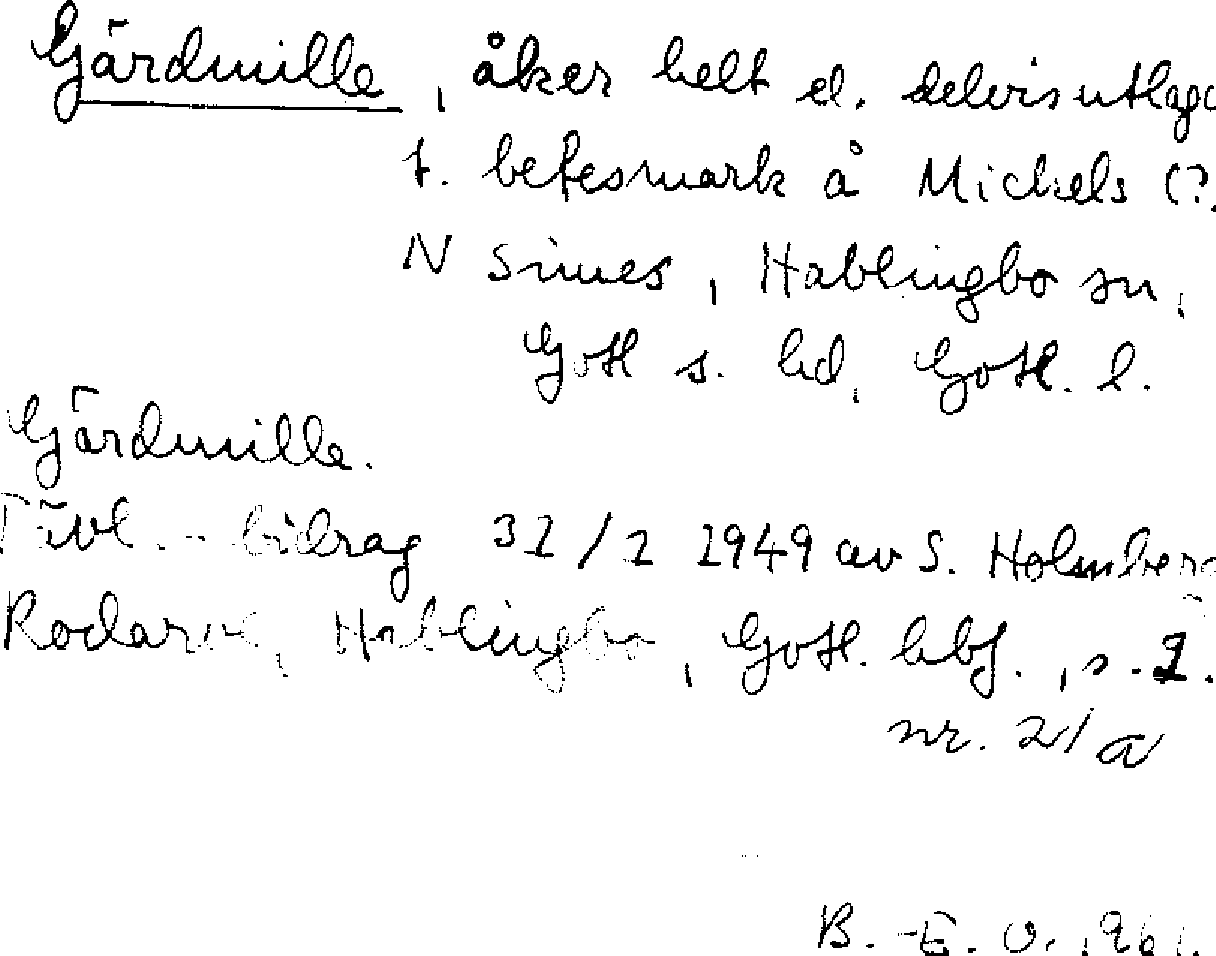 Gärdmille, åker helt el. delvis utlagd
t. betesmark å Michels (?.
N Simes, Hablingbo sn,
Gotl s. hd, Gotl. l.
Gärdmille.
Tävl.-bidrag 31/1 1949 av S. Holmberg
Rodarve, Hablingbo, Gotl. hbf., s. 1.
nr. 21 a
B.-E. O. 1961.